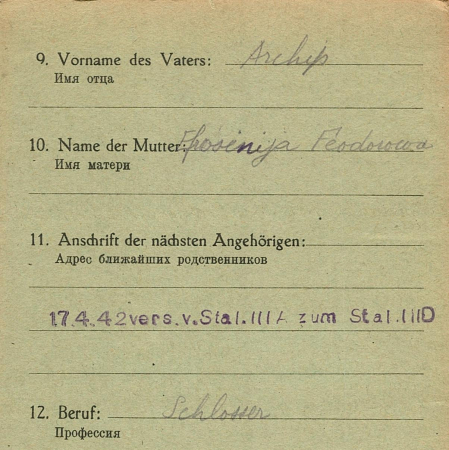 9. Vorname des Vaters: Archip
Имя отца
10. Name der Mutter: Feodorowa
Имя матери
11. Anschrift der nächsten Angehörigen:
Адрес ближайших родственников
17.4.42vers.v.Stal.IIIA zum Stal.IIID
12. Beruf: Schlosser
Профессия